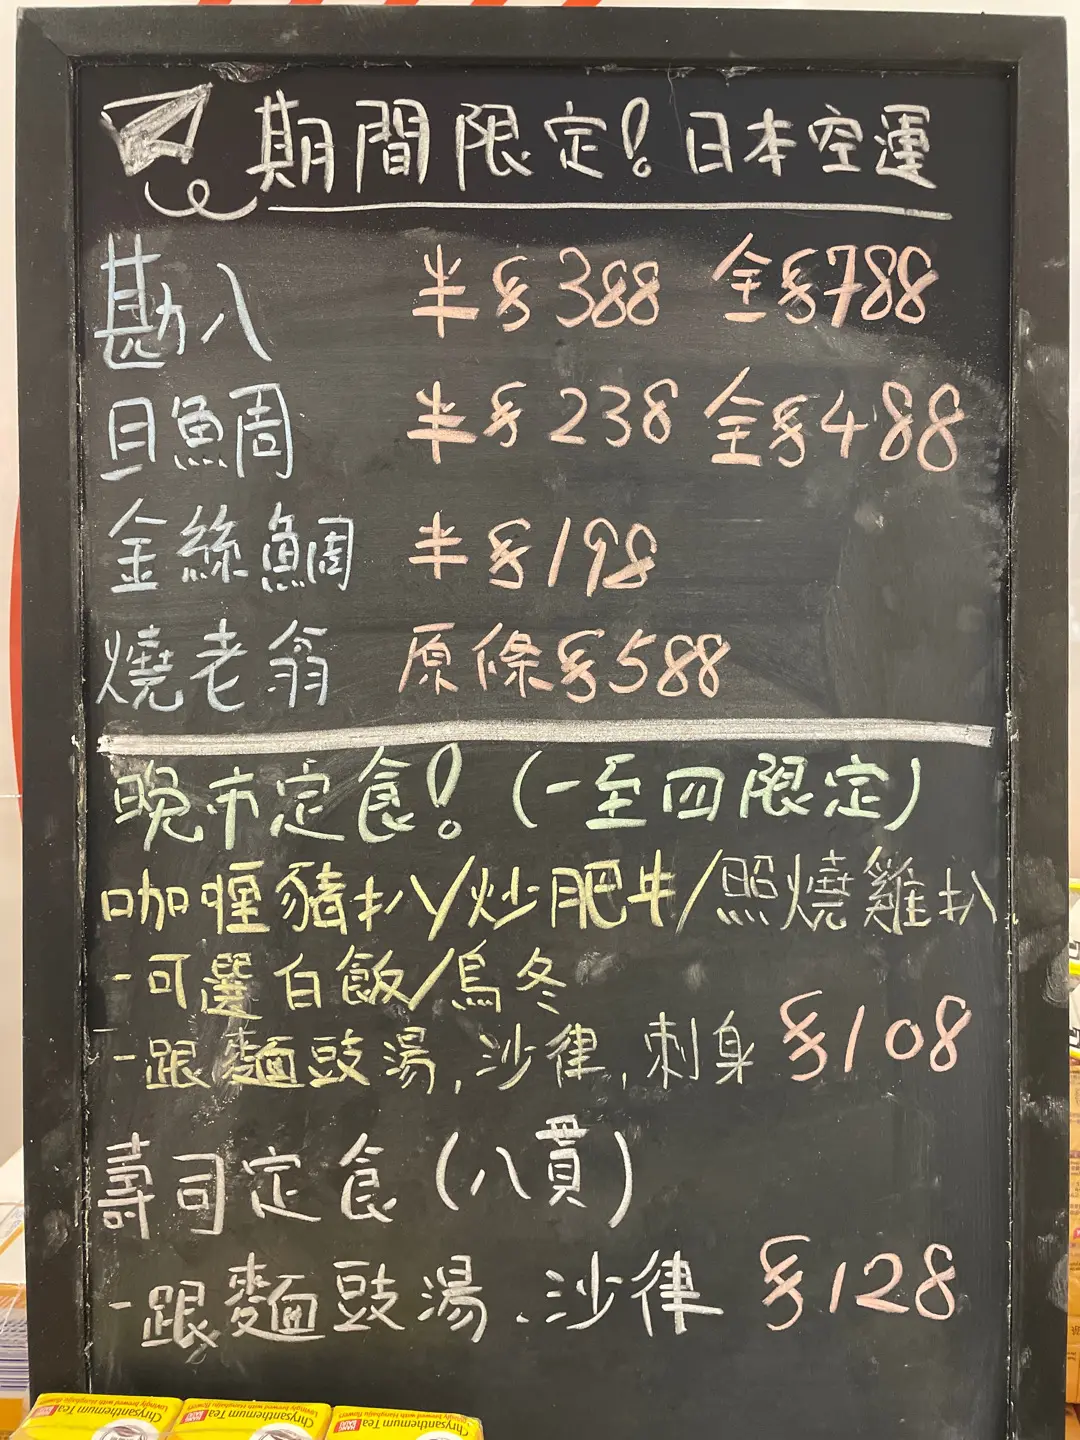 期間限定！日本空運
勘八 半 $388 全 $788
目鯛 半 $238 全 $488
金絲鯛 半 $198
燒老翁 原條 $588
晚市定食！(一至四限定)
咖喱豬扒/炒肥牛/照燒雞扒
-可選白飯/烏冬
-跟麵豉湯,沙律,刺身 $108
壽司定食(八貫)
-跟麵豉湯.沙律 $128
Chrysanthemum Tea
Chrysanthemum Tea
Chrysanthemum Tea